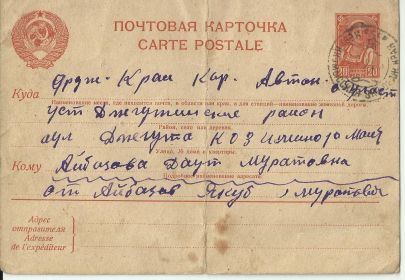 ПОЧТОВАЯ КАРТОЧКА
CARTE POSTALE
20 20
Куда Ордж. Край Кар. Автон. область
Наименование места, где находится почта, и области или края, а для станций — наименование железной дороги
Уст Джегутинские район
Район, село или деревня.
аул Джегута КОЗ
Улица, № дома и квартиры.
Кому Айбазова Даут Муратовна
Подробное наименование адресата
от Айбазов Якуб Муратович
Адрес
отправителя
Adresse de
l'expéditeur